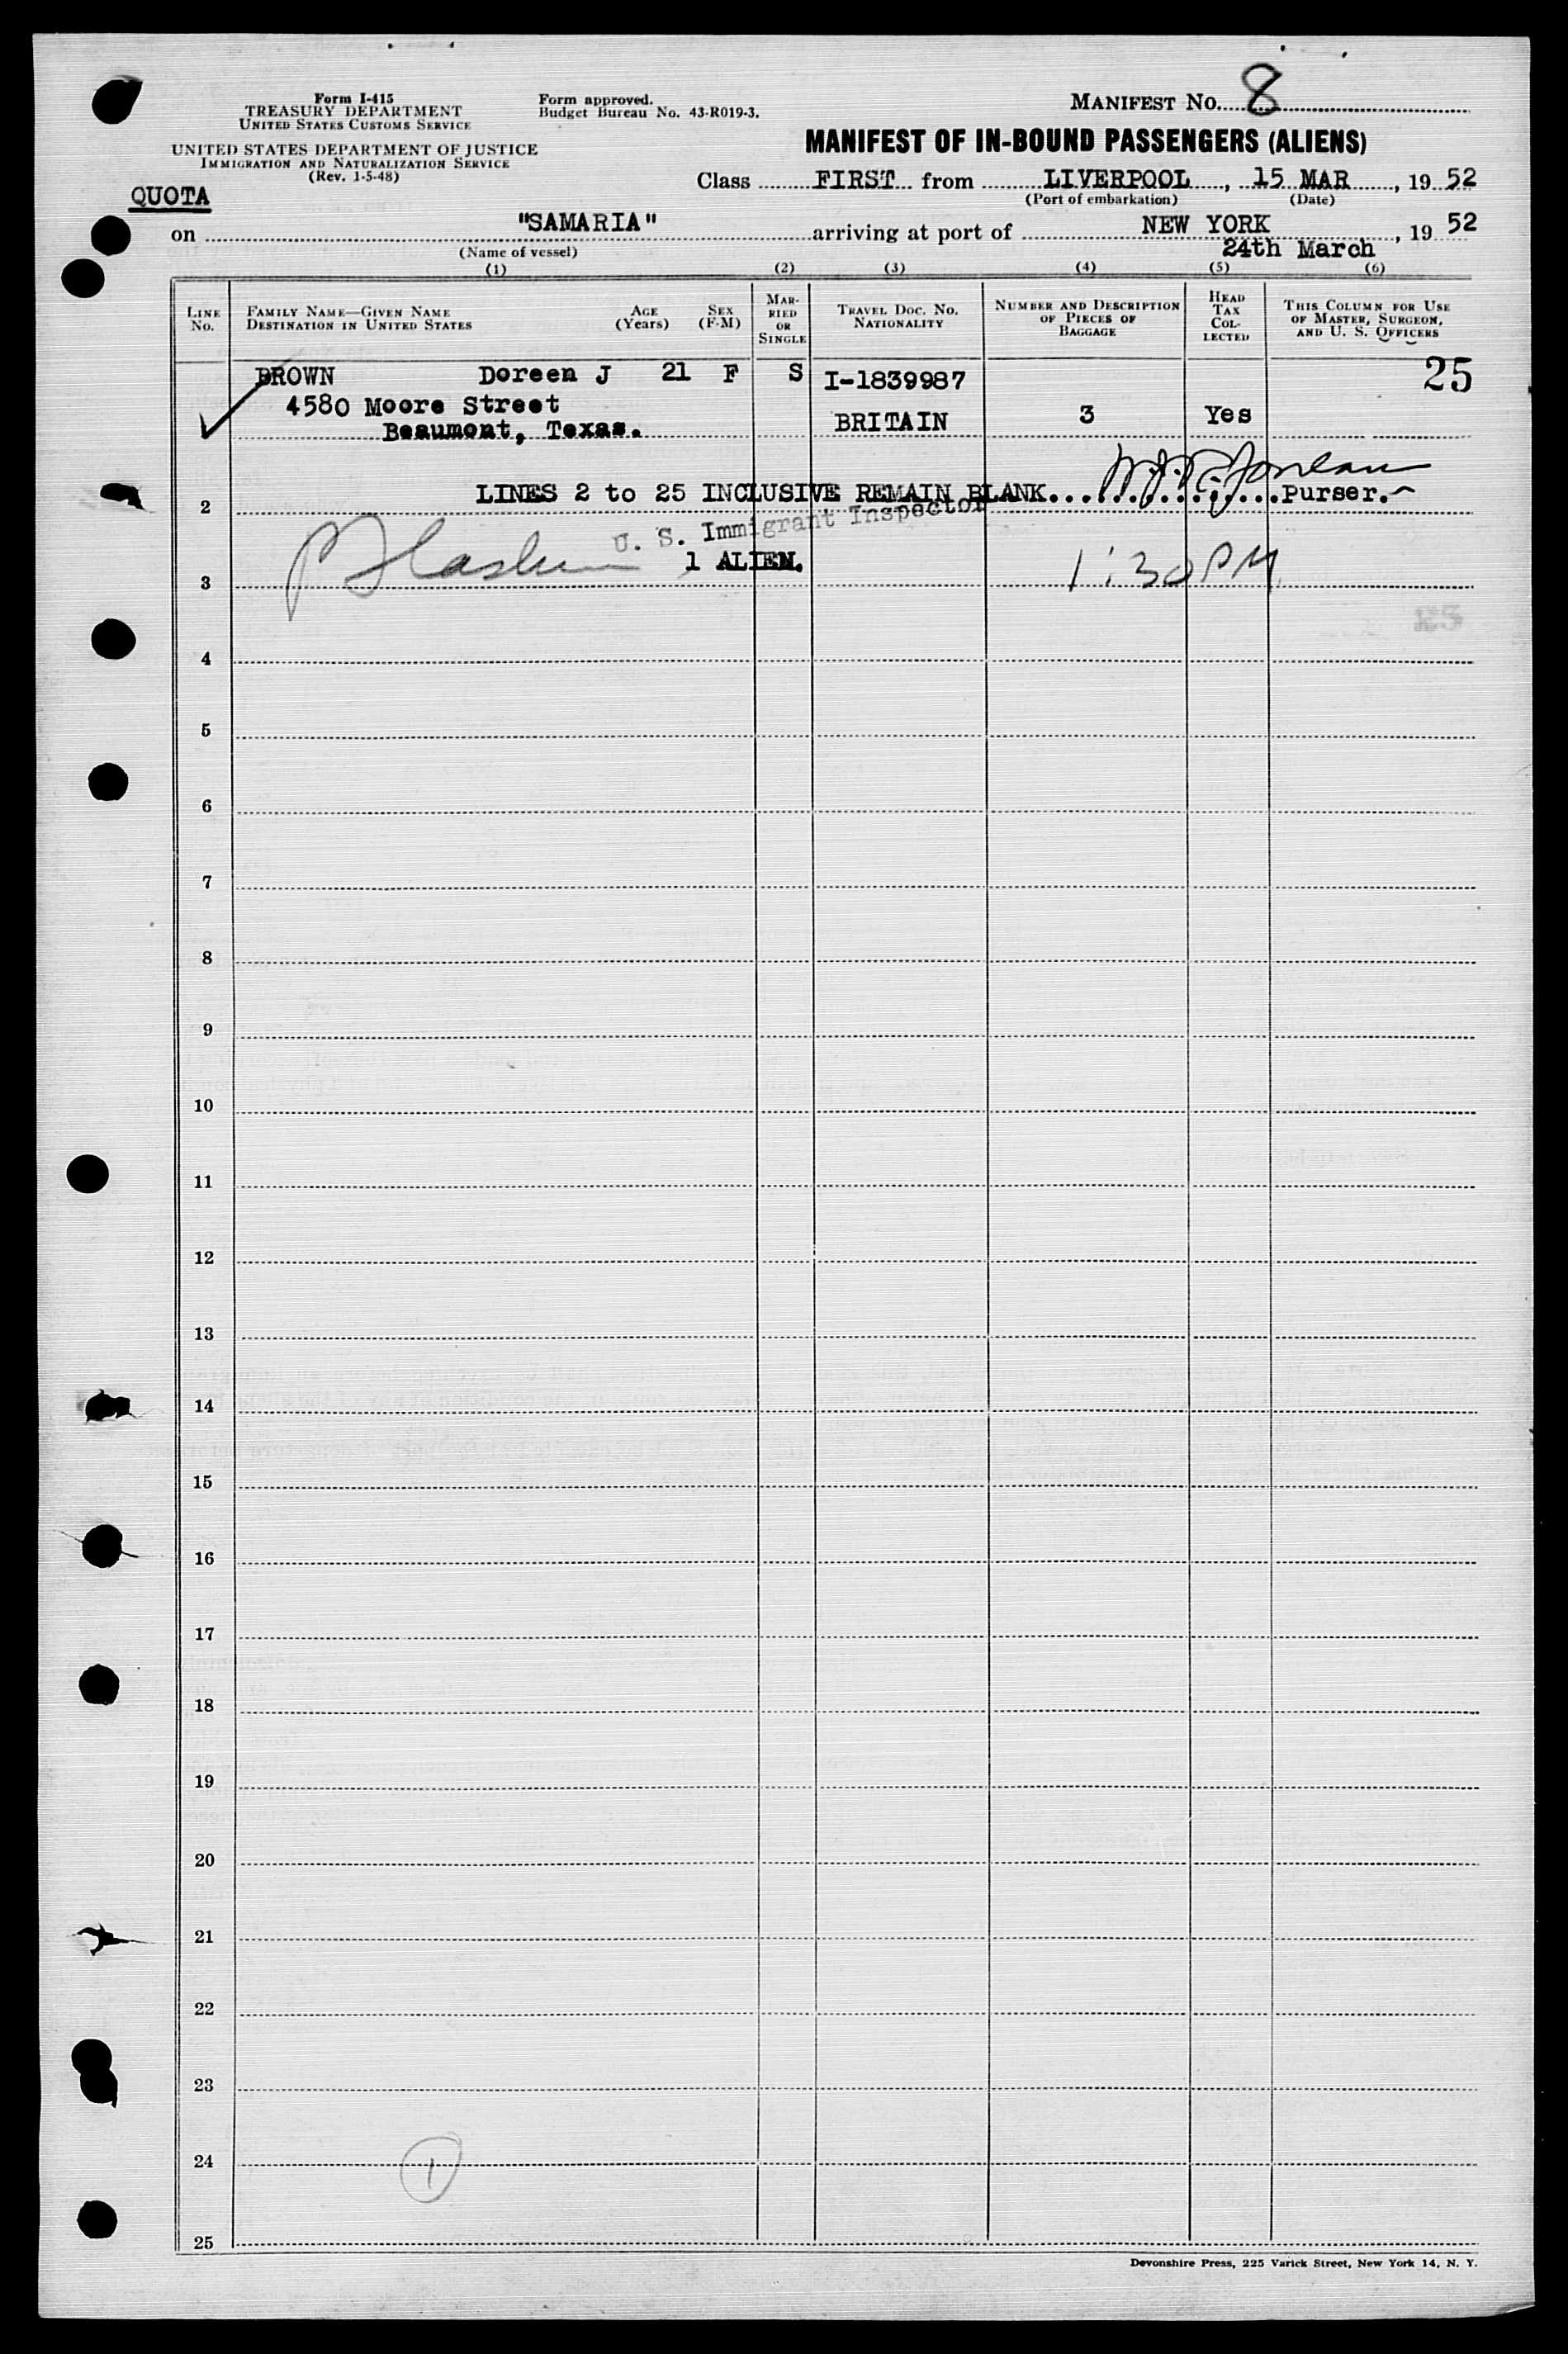 Form I-415
TREASURY DEPARTMENT
UNITED STATES CUSTOMS SERVICE
UNITED STATES DEPARTMENT OF JUSTICE
IMMIGRATION AND NATURALIZATION SERVICE
(Rev. 1-5-48)
Form approved.
Budget Bureau No. 43-R019-3.
MANIFEST No. 8
MANIFEST OF IN-BOUND PASSENGERS (ALIENS)
Class FIRST from LIVERPOOL, 15 MAR, 19 52
(Port of embarkation) (Date)
QUOTA
on "SAMARIA" arriving at port of NEW YORK, 19 52
24th March
(Name of vessel)
(1) (2) (3) (4) (5) (6)
LINE No. FAMILY NAME—GIVEN NAME DESTINATION IN UNITED STATES AGE (Years) SEX (F-M) MARRIED OR SINGLE TRAVEL DOC. NO. NATIONALITY NUMBER AND DESCRIPTION OF PIECES OF BAGGAGE HEAD TAX COLLECTED THIS COLUMN FOR USE OF MASTER, SURGEON, AND U. S. OFFICERS
BROWN Doreen J 21 F S I-1839987 25
4580 Moore Street
Beaumont, Texas. BRITAIN 3 Yes
2 LINES 2 to 25 INCLUSIVE REMAIN BLANK................Purser.
U. S. Immigrant Inspector
1 ALIEN. 1:30 PM
3
4
5
6
7
8
9
10
11
12
13
14
15
16
17
18
19
20
21
22
23
24 1
25
Devonshire Press, 225 Varick Street, New York 14, N. Y.